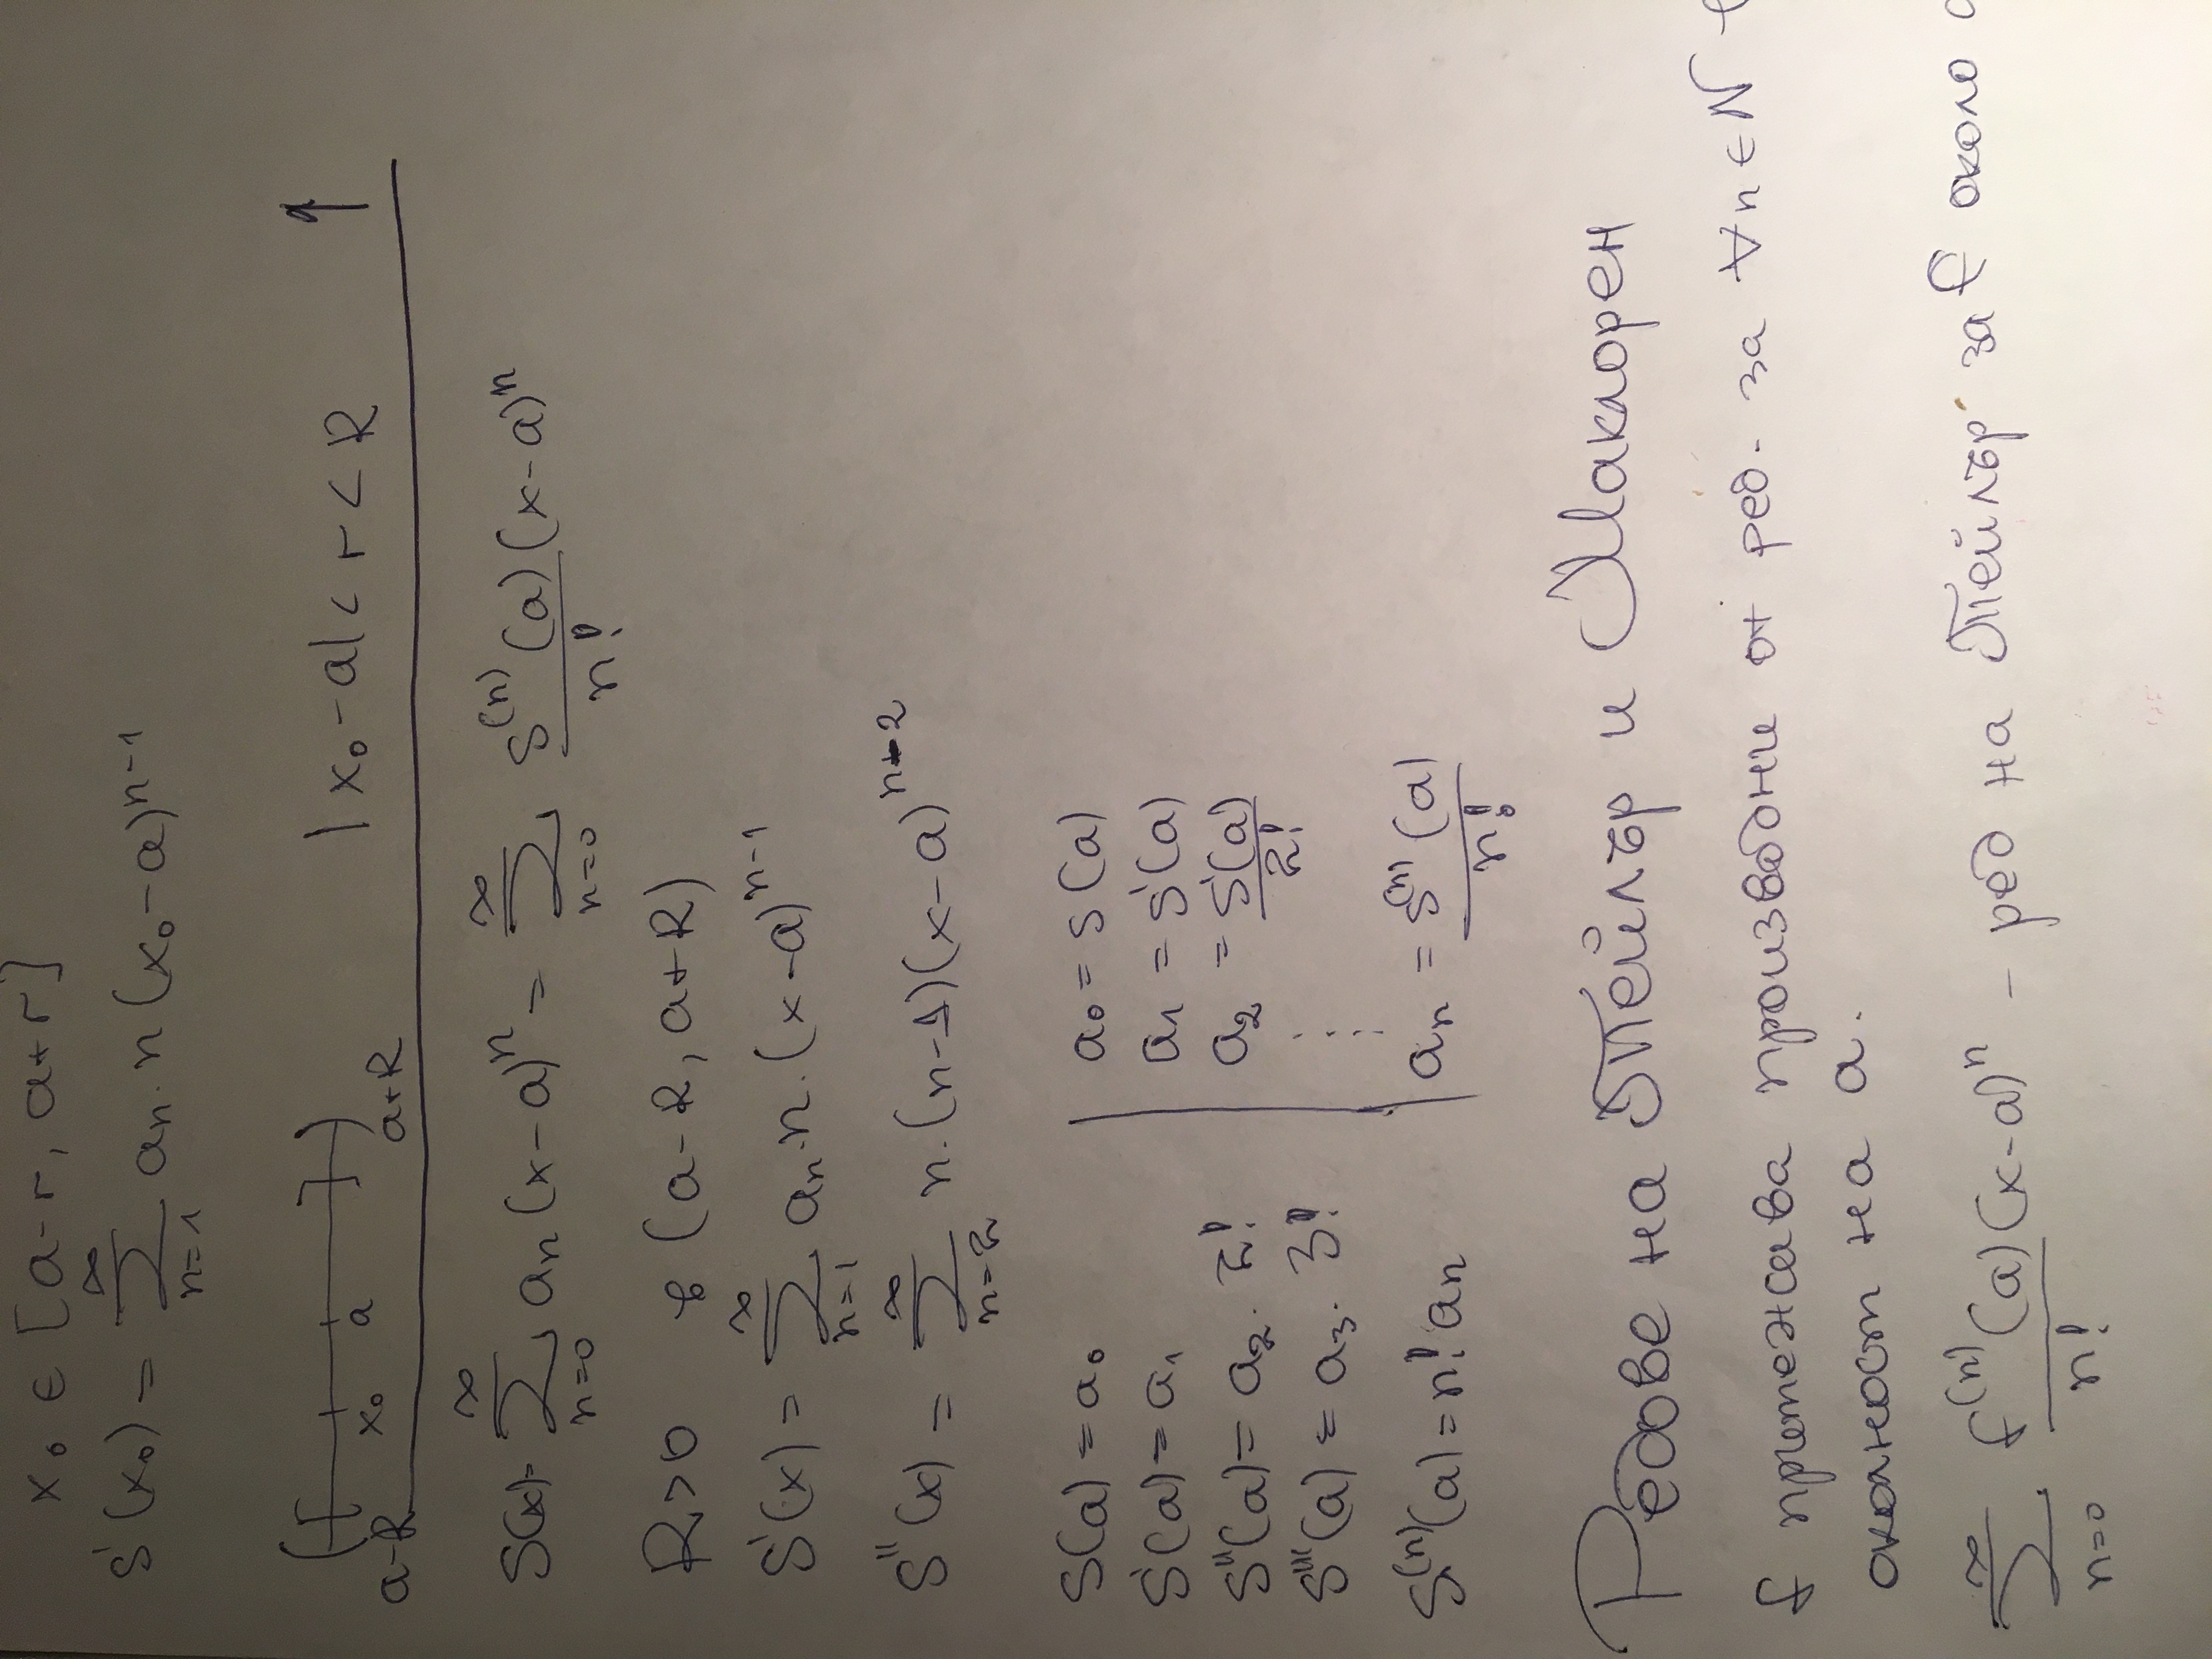 x₀ ∈ [a-r, a+r]
S'(x₀) = ∑_{n=1}^{∞} aₙ. n (x₀-a)^{n-1}
a-R x₀ a a+R |x₀-a| < r < R ↑
S(x)= ∑_{n=0}^{∞} aₙ (x-a)^n = ∑_{n=0}^{∞} S^{(n)}(a)/n! (x-a)^n
R>0 в (a-R, a+R)
S'(x) = ∑_{n=1}^{∞} aₙ.n.(x-a)^{n-1}
S''(x) = ∑_{n=2}^{∞} n.(n-1)(x-a)^{n-2}
S(a) = a₀ | a₀ = S(a)
S'(a) = a₁ | a₁ = S'(a)
S''(a) = a₂. 2! | a₂ = S'(a)/2!
S'''(a) = a₃. 3! | ⋮
S^{(n)}(a) = n! aₙ | aₙ = S^{(n)}(a)/n!
Редове на Тейлър и Маклорен
f притежава производни от ред. за ∀n∈N
околност на a.
∑_{n=0}^{∞} f^{(n)}(a)/n! (x-a)^n - ред на Тейлър за f около